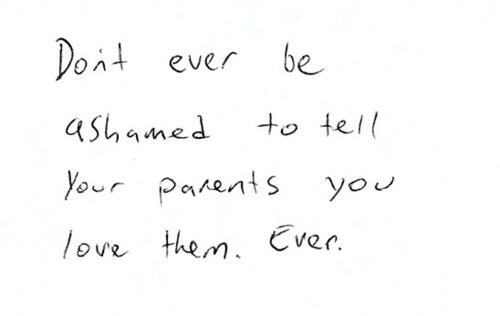 Don't ever be
ashamed to tell
your parents you
love them. Ever.